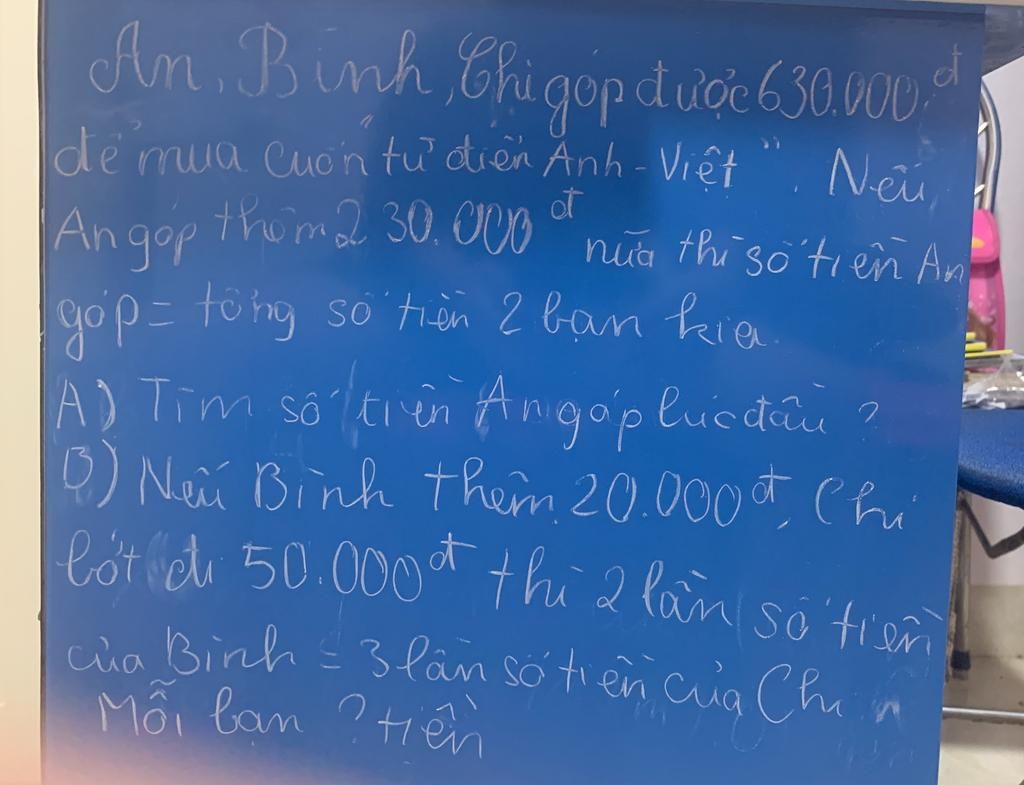 An, Bình, Chi góp được 630.000đ
để mua cuốn "từ điển Anh - Việt". Nếu
An góp thêm 230.000đ nữa thì số tiền An
góp = tổng số tiền 2 bạn kia.
A) Tìm số tiền An góp lúc đầu ?
B) Nếu Bình thêm 20.000đ, Chi
bớt đi 50.000đ thì 2 lần số tiền
của Bình = 3 lần số tiền của Chi
Mỗi bạn ? tiền